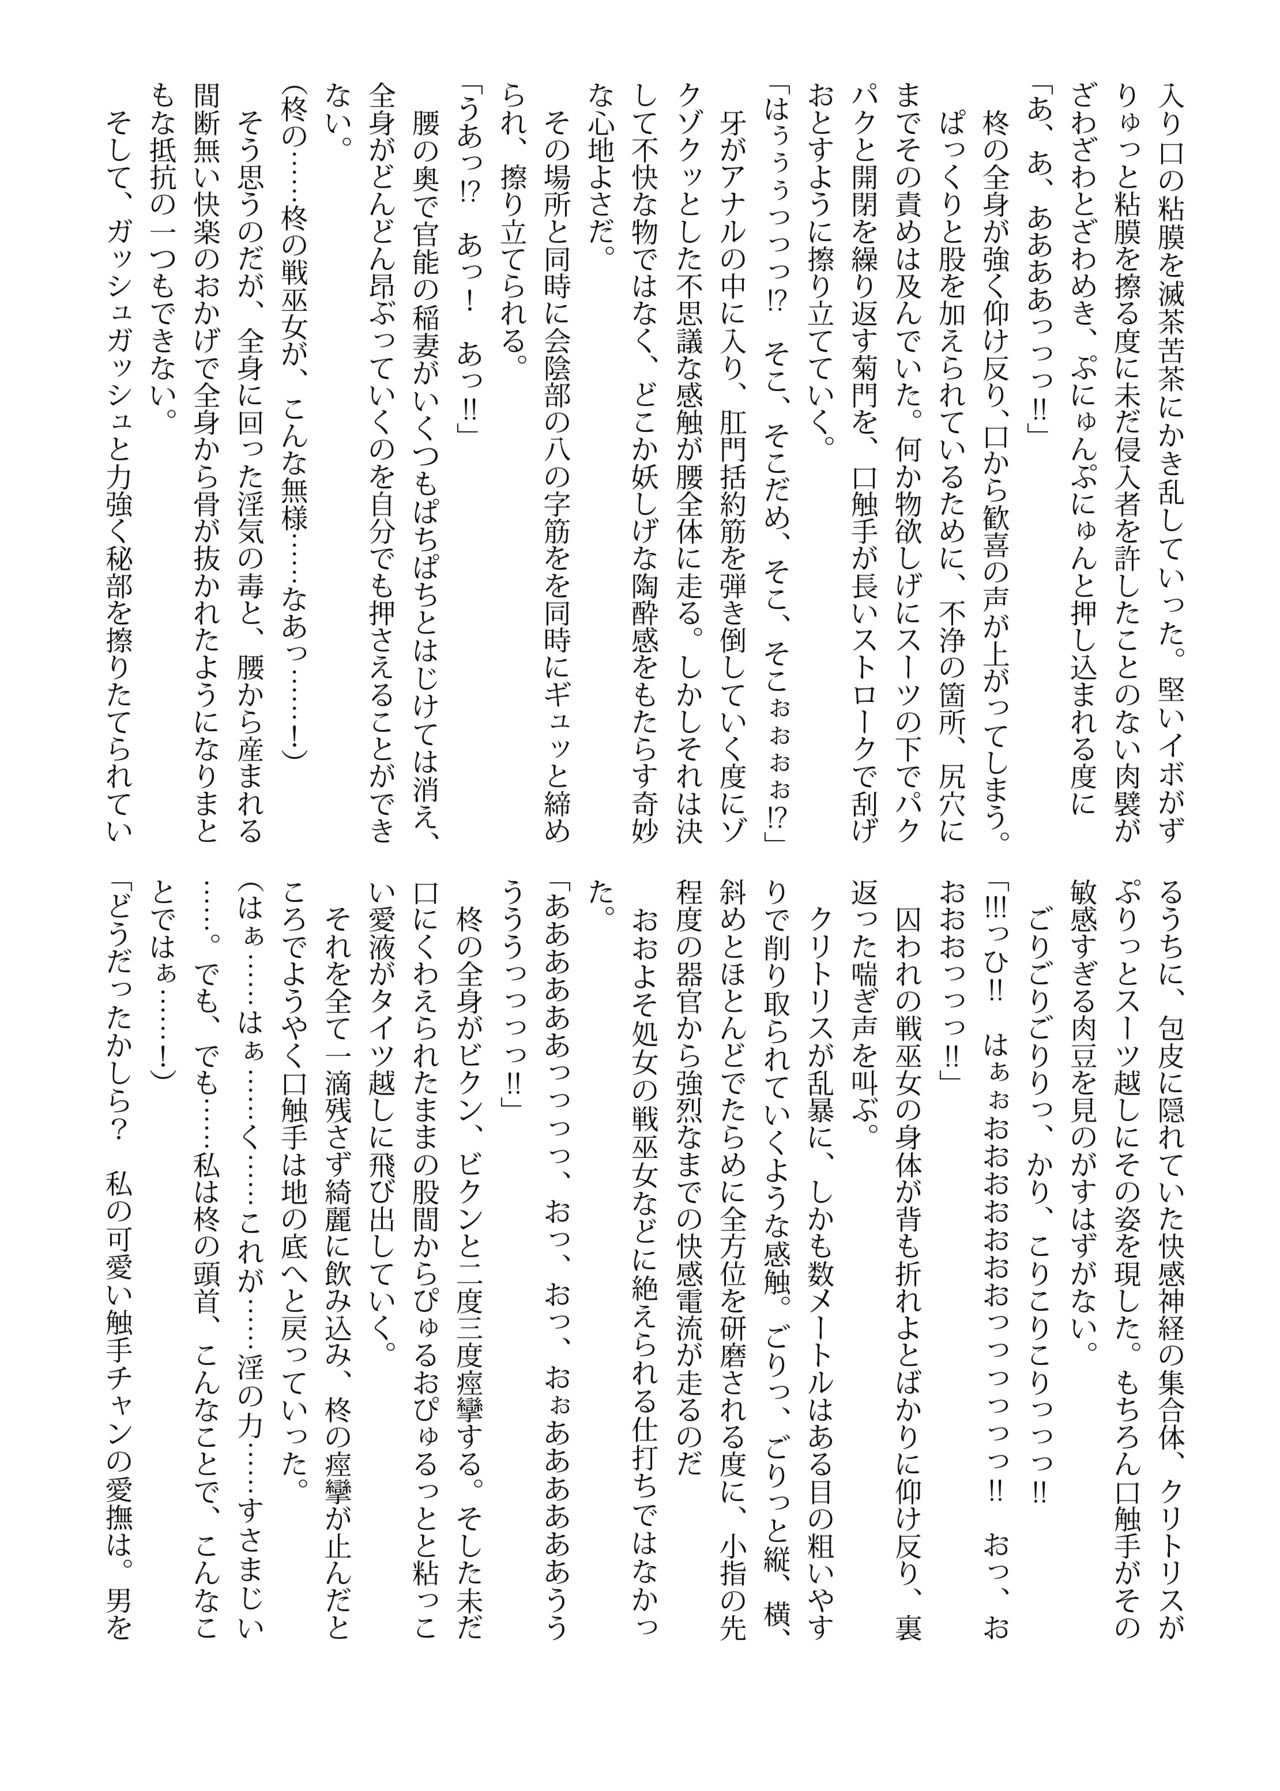 入り口の粘膜を滅茶苦茶にかき乱していった。堅いイボがず
りゅっと粘膜を擦る度に未だ侵入者を許したことのない肉襞が
ざわざわとざわめき、ぷにゅんぷにゅんと押し込まれる度に
「あ、あ、ああああっっっ!!」
柊の全身が強く仰け反り、口から歓喜の声が上がってしまう。
ぱっくりと股を加えられているために、不浄の箇所、尻穴に
までその責めは及んでいた。何か物欲しげにスーツの下でパク
パクと開閉を繰り返す菊門を、口触手が長いストロークで刮げ
おとすように擦り立てていく。
「はぅぅぅっっっ!?　そこ、そこだめ、そこ、そこぉぉぉぉ!?」
牙がアナルの中に入り、肛門括約筋を弾き倒していく度にゾ
クゾクッとした不思議な感触が腰全体に走る。しかしそれは決
して不快な物ではなく、どこか妖しげな陶酔感をもたらす奇妙
な心地よさだ。
その場所と同時に会陰部の八の字筋をを同時にギュッと締め
られ、擦り立てられる。
「うあっ!?　あっ！　あっ!!」
腰の奥で官能の稲妻がいくつもぱちぱちとはじけては消え、
全身がどんどん昂ぶっていくのを自分でも押さえることができ
ない。
（柊の……柊の戦巫女が、こんな無様……なあっ……！）
そう思うのだが、全身に回った淫気の毒と、腰から産まれる
間断無い快楽のおかげで全身から骨が抜かれたようになりまと
もな抵抗の一つもできない。
そして、ガッシュガッシュと力強く秘部を擦りたてられてい
るうちに、包皮に隠れていた快感神経の集合体、クリトリスが
ぷりっとスーツ越しにその姿を現した。もちろん口触手がその
敏感すぎる肉豆を見のがすはずがない。
ごりごりごりりっ、かり、こりこりこりっっっ!!
「!!!っひ!!　はぁぉおおおおおおおっっっっっ!!　おっ、お
おおおっっっ!!」
囚われの戦巫女の身体が背も折れよとばかりに仰け反り、裏
返った喘ぎ声を叫ぶ。
クリトリスが乱暴に、しかも数メートルはある目の粗いやす
りで削り取られていくような感触。ごりっ、ごりっと縦、横、
斜めとほとんどでたらめに全方位を研磨される度に、小指の先
程度の器官から強烈なまでの快感電流が走るのだ
おおよそ処女の戦巫女などに絶えられる仕打ちではなかっ
た。
「ああああああっっっっ、おっ、おっ、おぉああああああうう
うううっっっっ!!」
柊の全身がビクン、ビクンと二度三度痙攣する。そした未だ
口にくわえられたままの股間からぴゅるおぴゅるっとと粘っこ
い愛液がタイツ越しに飛び出していく。
それを全て一滴残さず綺麗に飲み込み、柊の痙攣が止んだと
ころでようやく口触手は地の底へと戻っていった。
（はぁ……はぁ……く……これが……淫の力……すさまじい
……。でも、でも……私は柊の頭首、こんなことで、こんなこ
とではぁ……！）
「どうだったかしら？　私の可愛い触手チャンの愛撫は。男を